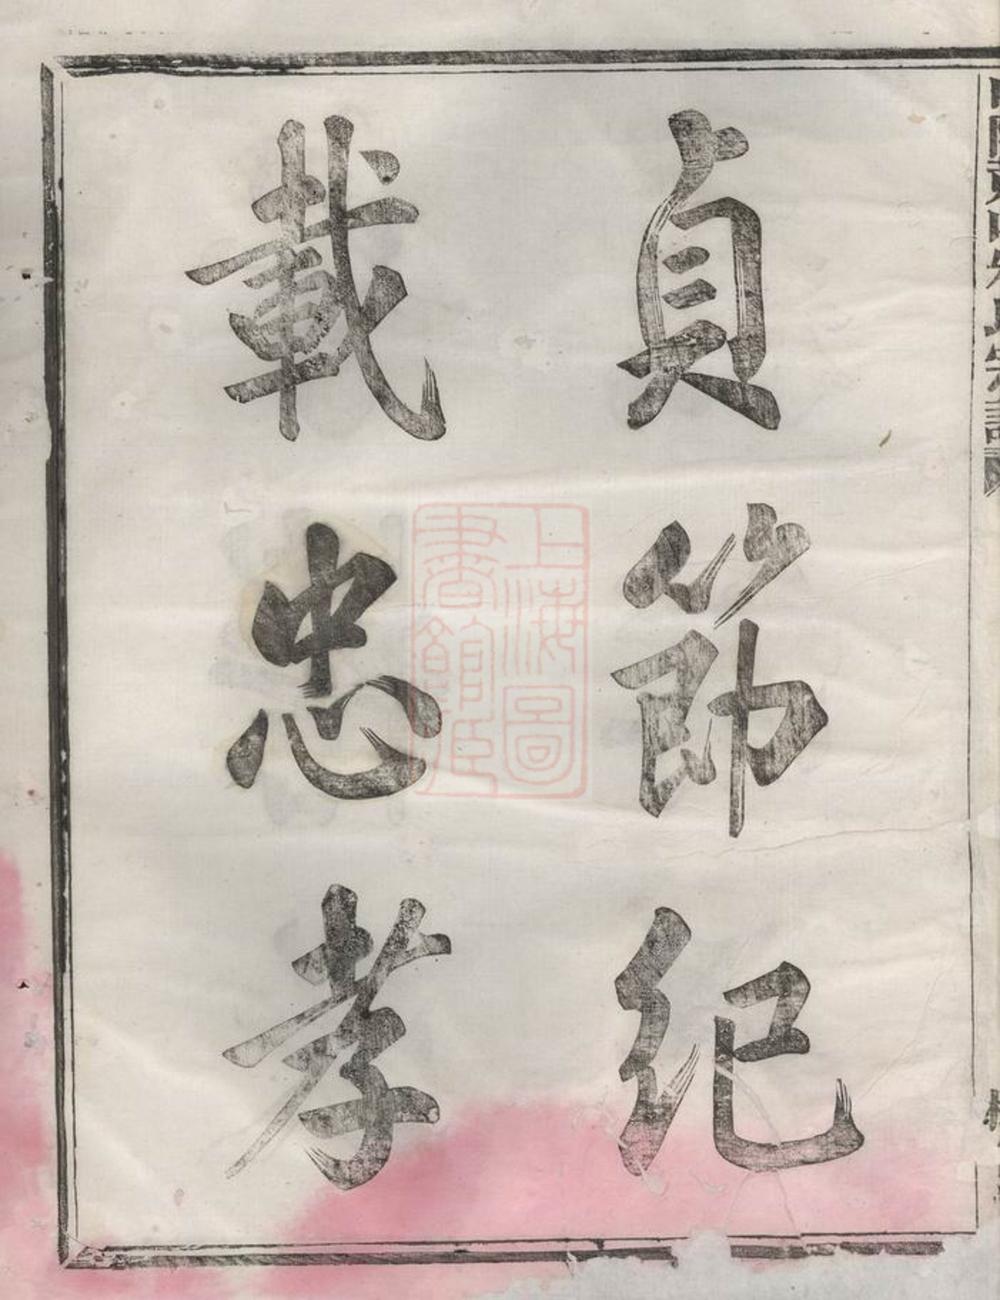 貞節紀
載忠孝
上海圖
書館藏
宗譜